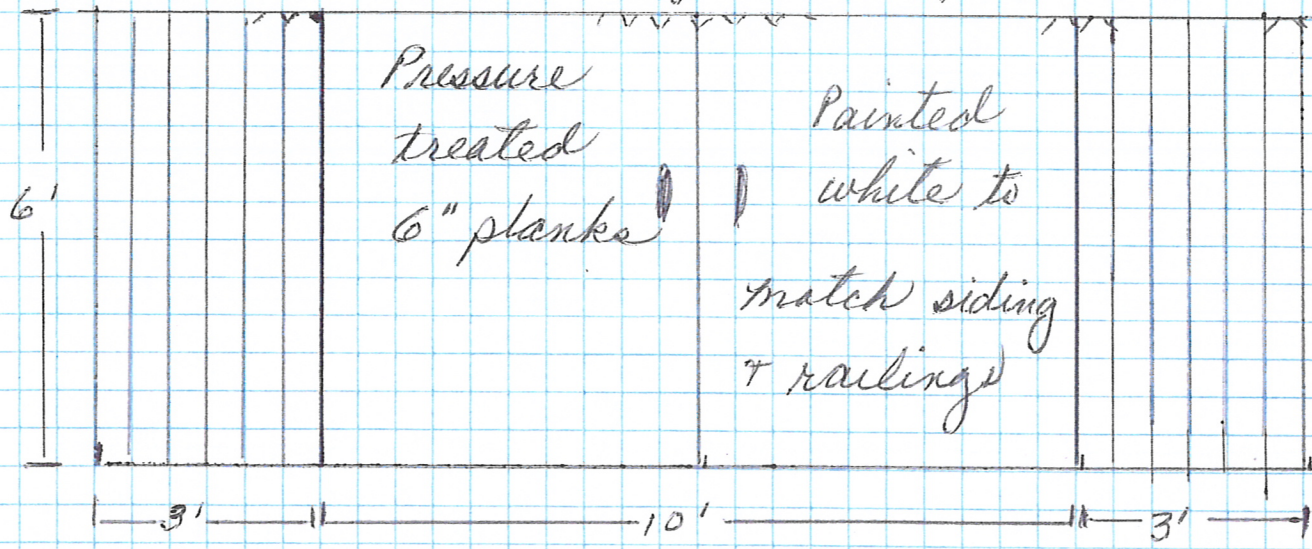 Pressure
treated
6" planks
Painted
white to
match siding
+ railings
6'
3'
10'
3'